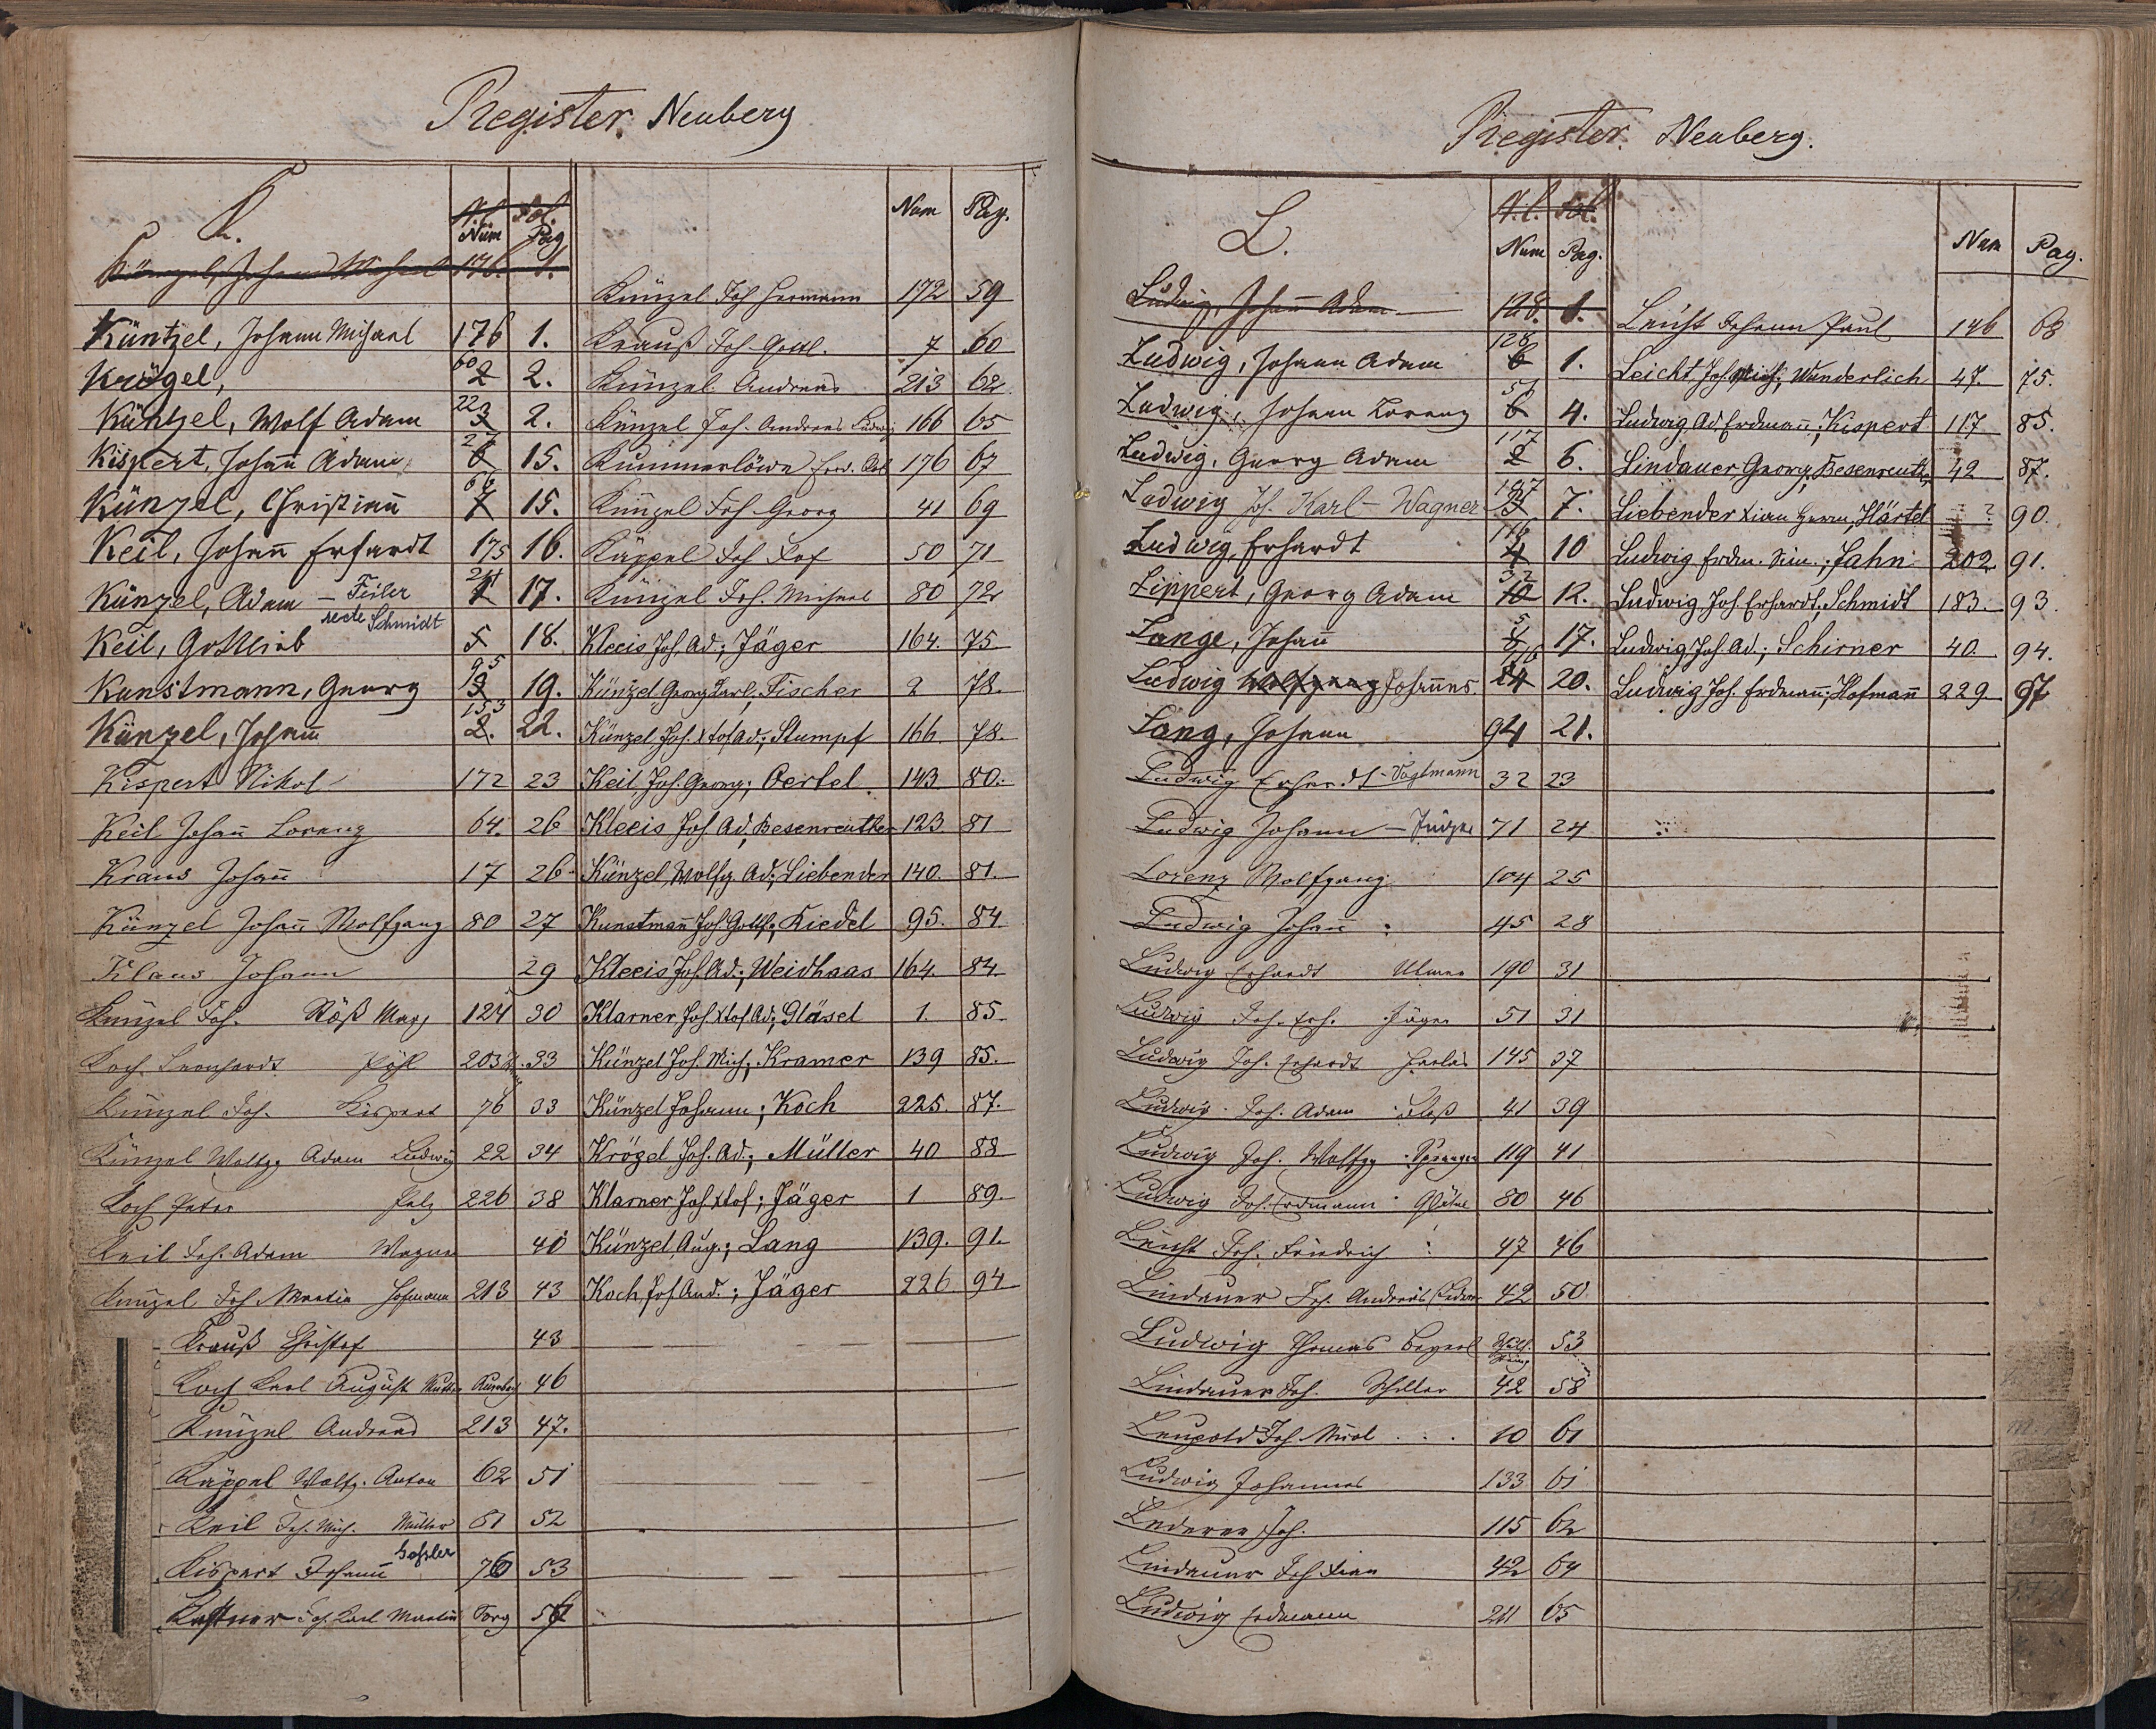 Register. Neuberg
K.
N. C. Fol.
Num Pag
Künzel, Johann Michael 176. 1.
Küntzel, Johann Michael 176 1.
Krögel, 60 2 2.
Küntzel, Wolf Adam 22 3 2.
Kispert, Johann Adam 6 15.
Künzel, Christian 66 7 15.
Keil, Johann Erhardt 175 16.
Künzel, Adam – Feiler 1 17.
recte Schmidt
Keil, Gottlieb 5 18.
Kunstmann, Georg 95 19.
Künzel, Johann 153 2. 22.
Kispert Nikol 172 23
Keil Johann Lorenz 64. 26
Kraus Johann 17 26
Künzel Johann Wolfgang 80 27
Klaus Johann 29
Künzel Joh. Röß Marg 124 30
Koch Leonhardt Pöhl 203 33
Künzel Joh. Kispert 76 33
Künzel Wolfg. Adam Ludwig 22 34
Koch Peter Pelz 226 38
Keil Joh. Adam Wagner 40
Künzel Joh Martin Hofmann 213 43
Krauß Christof 43
Koch Karl August 46
Künzel Andreas 213 47.
Käppel Wolfg. Anton 62 51
Keil Joh. Mich. Müller 61 52
Kispert Johann 76 53
Kastner Joh. Karl Martin 56
Num Pag.
Künzel Joh Hermann 172 59
Krauß Joh. Gottl. 7 60
Künzel Andreas 213 62
Künzel Joh. Andreas Ludwig 166 65
Kummerlöwe 176 67
Künzel Joh. Georg 41 69
Käppel Joh 50 71
Künzel Joh. Michael 80 72
Kleeis Joh. Ad.; Jäger 164. 75
Künzel Georg Karl; Fischer 2 78.
Künzel Joh. Xtof Ad.; Stumpf 166. 78.
Keil, Joh. Georg; Oertel. 143 80.
Kleeis Joh Ad; Besenreuther 123. 81
Künzel, Wolfg. Ad.; Liebender 140. 81.
Kunstmann Joh. Gottf.; Riedel 95. 84.
Kleeis Joh. Ad.; Weidhaas 164. 84
Klarner Joh. Xtof Ad; Gläsel 1. 85.
Künzel Joh. Mich.; Kramer 139 85.
Künzel Johann; Koch 225. 87.
Krözel Joh. Ad.; Müller 40 88
Klarner Joh. Xtof; Jäger 1 89.
Künzel Aug.; Lang 139. 91.
Koch Joh And.; Jäger 226 94
Register. Neuberg.
L.
N. C. Fol.
Num Pag.
Ludwig, Johann Adam 128. 1.
Ludwig, Johann Adam 128 6 1.
Ludwig, Johann Lorenz 56 6 4.
Ludwig, Georg Adam 117 2 6.
Ludwig Joh. Karl – Wagner 3 7.
Ludwig, Erhardt 4 10
Lippert, Georg Adam 32 10 12.
Lange, Johann 5 17.
Ludwig Wolfgang Johannes. 20.
Lang, Johann 94 21.
Ludwig Erhardt – Vogtmann 32 23
Ludwig Johann – 71 24
Lorenz Wolfgang 104 25
Ludwig Johann 45 28
Ludwig Erhardt Ulmer 190 31
Ludwig Joh. Erh. Jäger 51 31
Ludwig Joh. Erhardt 145 37
Ludwig Joh. Adam 41 39
Ludwig Joh. Wolfg. 119 41
Ludwig Joh. Erdmann 80 46
Leicht Joh. Friedrich 47 46
Lindauer Joh. Andreas 42 50
Ludwig Thomas 53
Lindauer Joh. Schiller 42 58
Leupold Joh Nicol 10 61
Ludwig Johannes 133 61
Lederer Joh. 115 62
Lindauer Joh Xian 42 64
Ludwig Erdmann 211 65
Num Pag.
Leicht Johann Paul 146 68
Leicht, Joh. Mich.; Wunderlich 47. 75.
Ludwig Ad. Erdmann; Kispert 117 85.
Lindauer Georg; Besenreuth. 42 87.
Liebender Xian Herm, Härtel ? 90.
Ludwig Erdm. Sim.; Jahn. 202 91.
Ludwig Joh. Erhardt; Schmidt 183. 93.
Ludwig, Joh. Ad.; Schirner 40 94.
Ludwig Joh. Erdmann; Hofmann 229 97